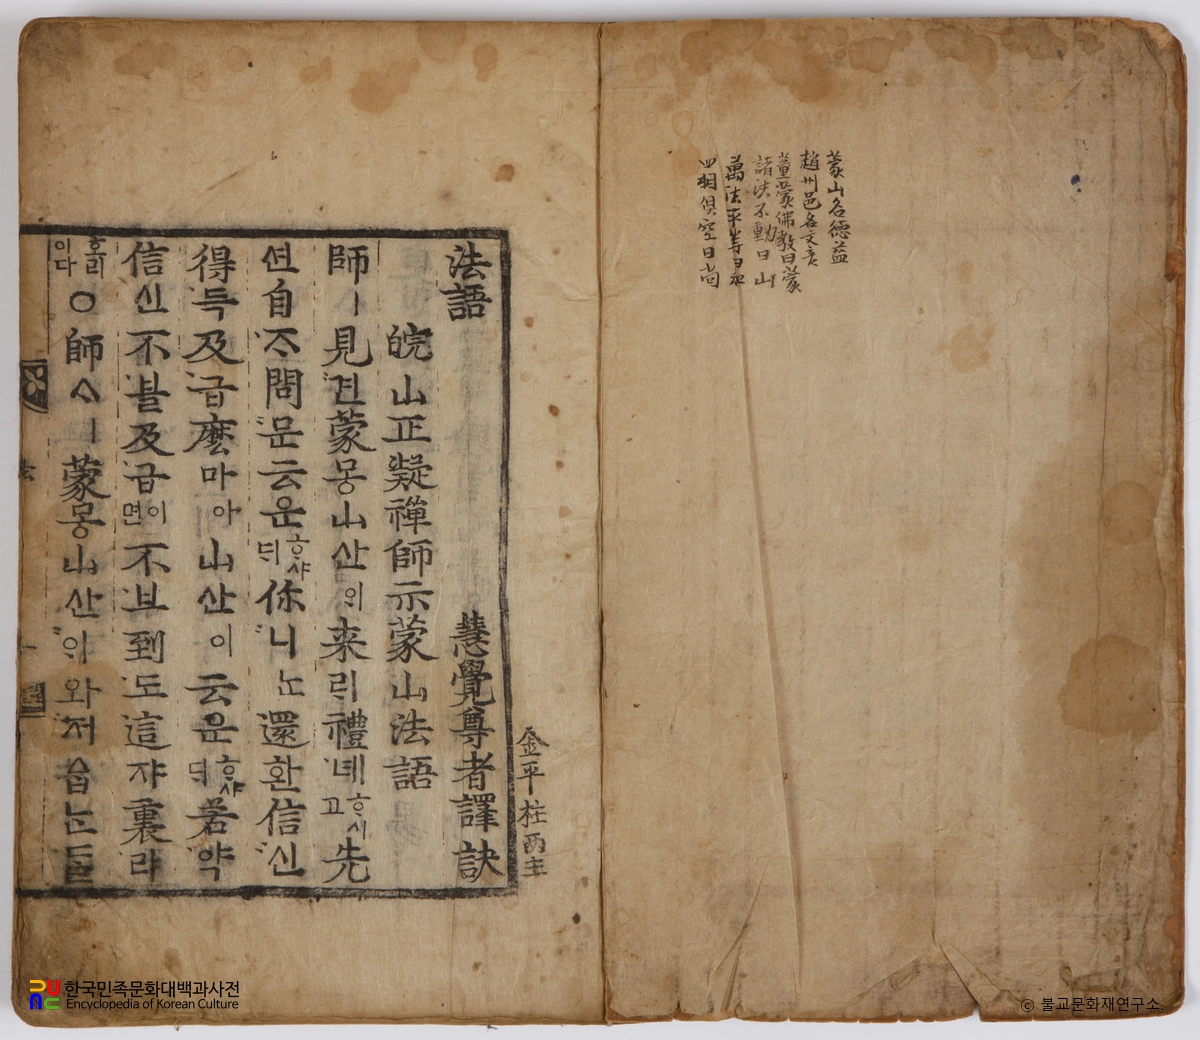 蒙山名德益
趙州邑名文
童蒙佛教曰蒙
諸法不動曰山
萬法平等曰和
四相俱空曰尚
金平柱兩主
法語 慧覺尊者譯訣
皖山正凝禪師示蒙山法語
師ᄉᆞㅣ見견蒙몽山산의來ᄅᆡ禮녜ᄒᆞ시고先
션自ᄍᆞ問문云운ᄒᆞ샤ᄃᆡ伱니ᄂᆞᆫ還환信신
得득及급麽마아山산이云운ᄒᆞ샤ᄃᆡ若약
信신不블及급이면不브到도這쟈裏리
ᄒᆞ리이다○師ᄉᆞㅣ蒙몽山산의와저ᅀᆞᆸᄂᆞᆫᄃᆞᆯ
法
一
한국민족문화대백과사전
Encyclopedia of Korean Culture
© 불교문화재연구소.